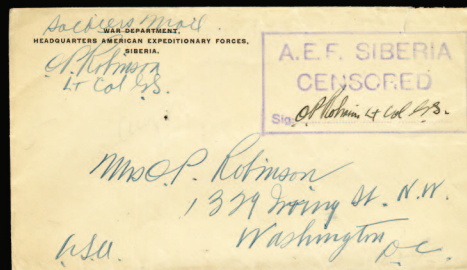 Soldiers Mail
WAR DEPARTMENT,
HEADQUARTERS AMERICAN EXPEDITIONARY FORCES,
SIBERIA.
O.P. Robinson
Lt Col G.S.
A.E.F. SIBERIA
CENSORED
Sig. O.P. Robinson Lt Col G.S.
Mrs O.P. Robinson
1329 Irving St. N.W.
Washington
D.C.
U.S.A.